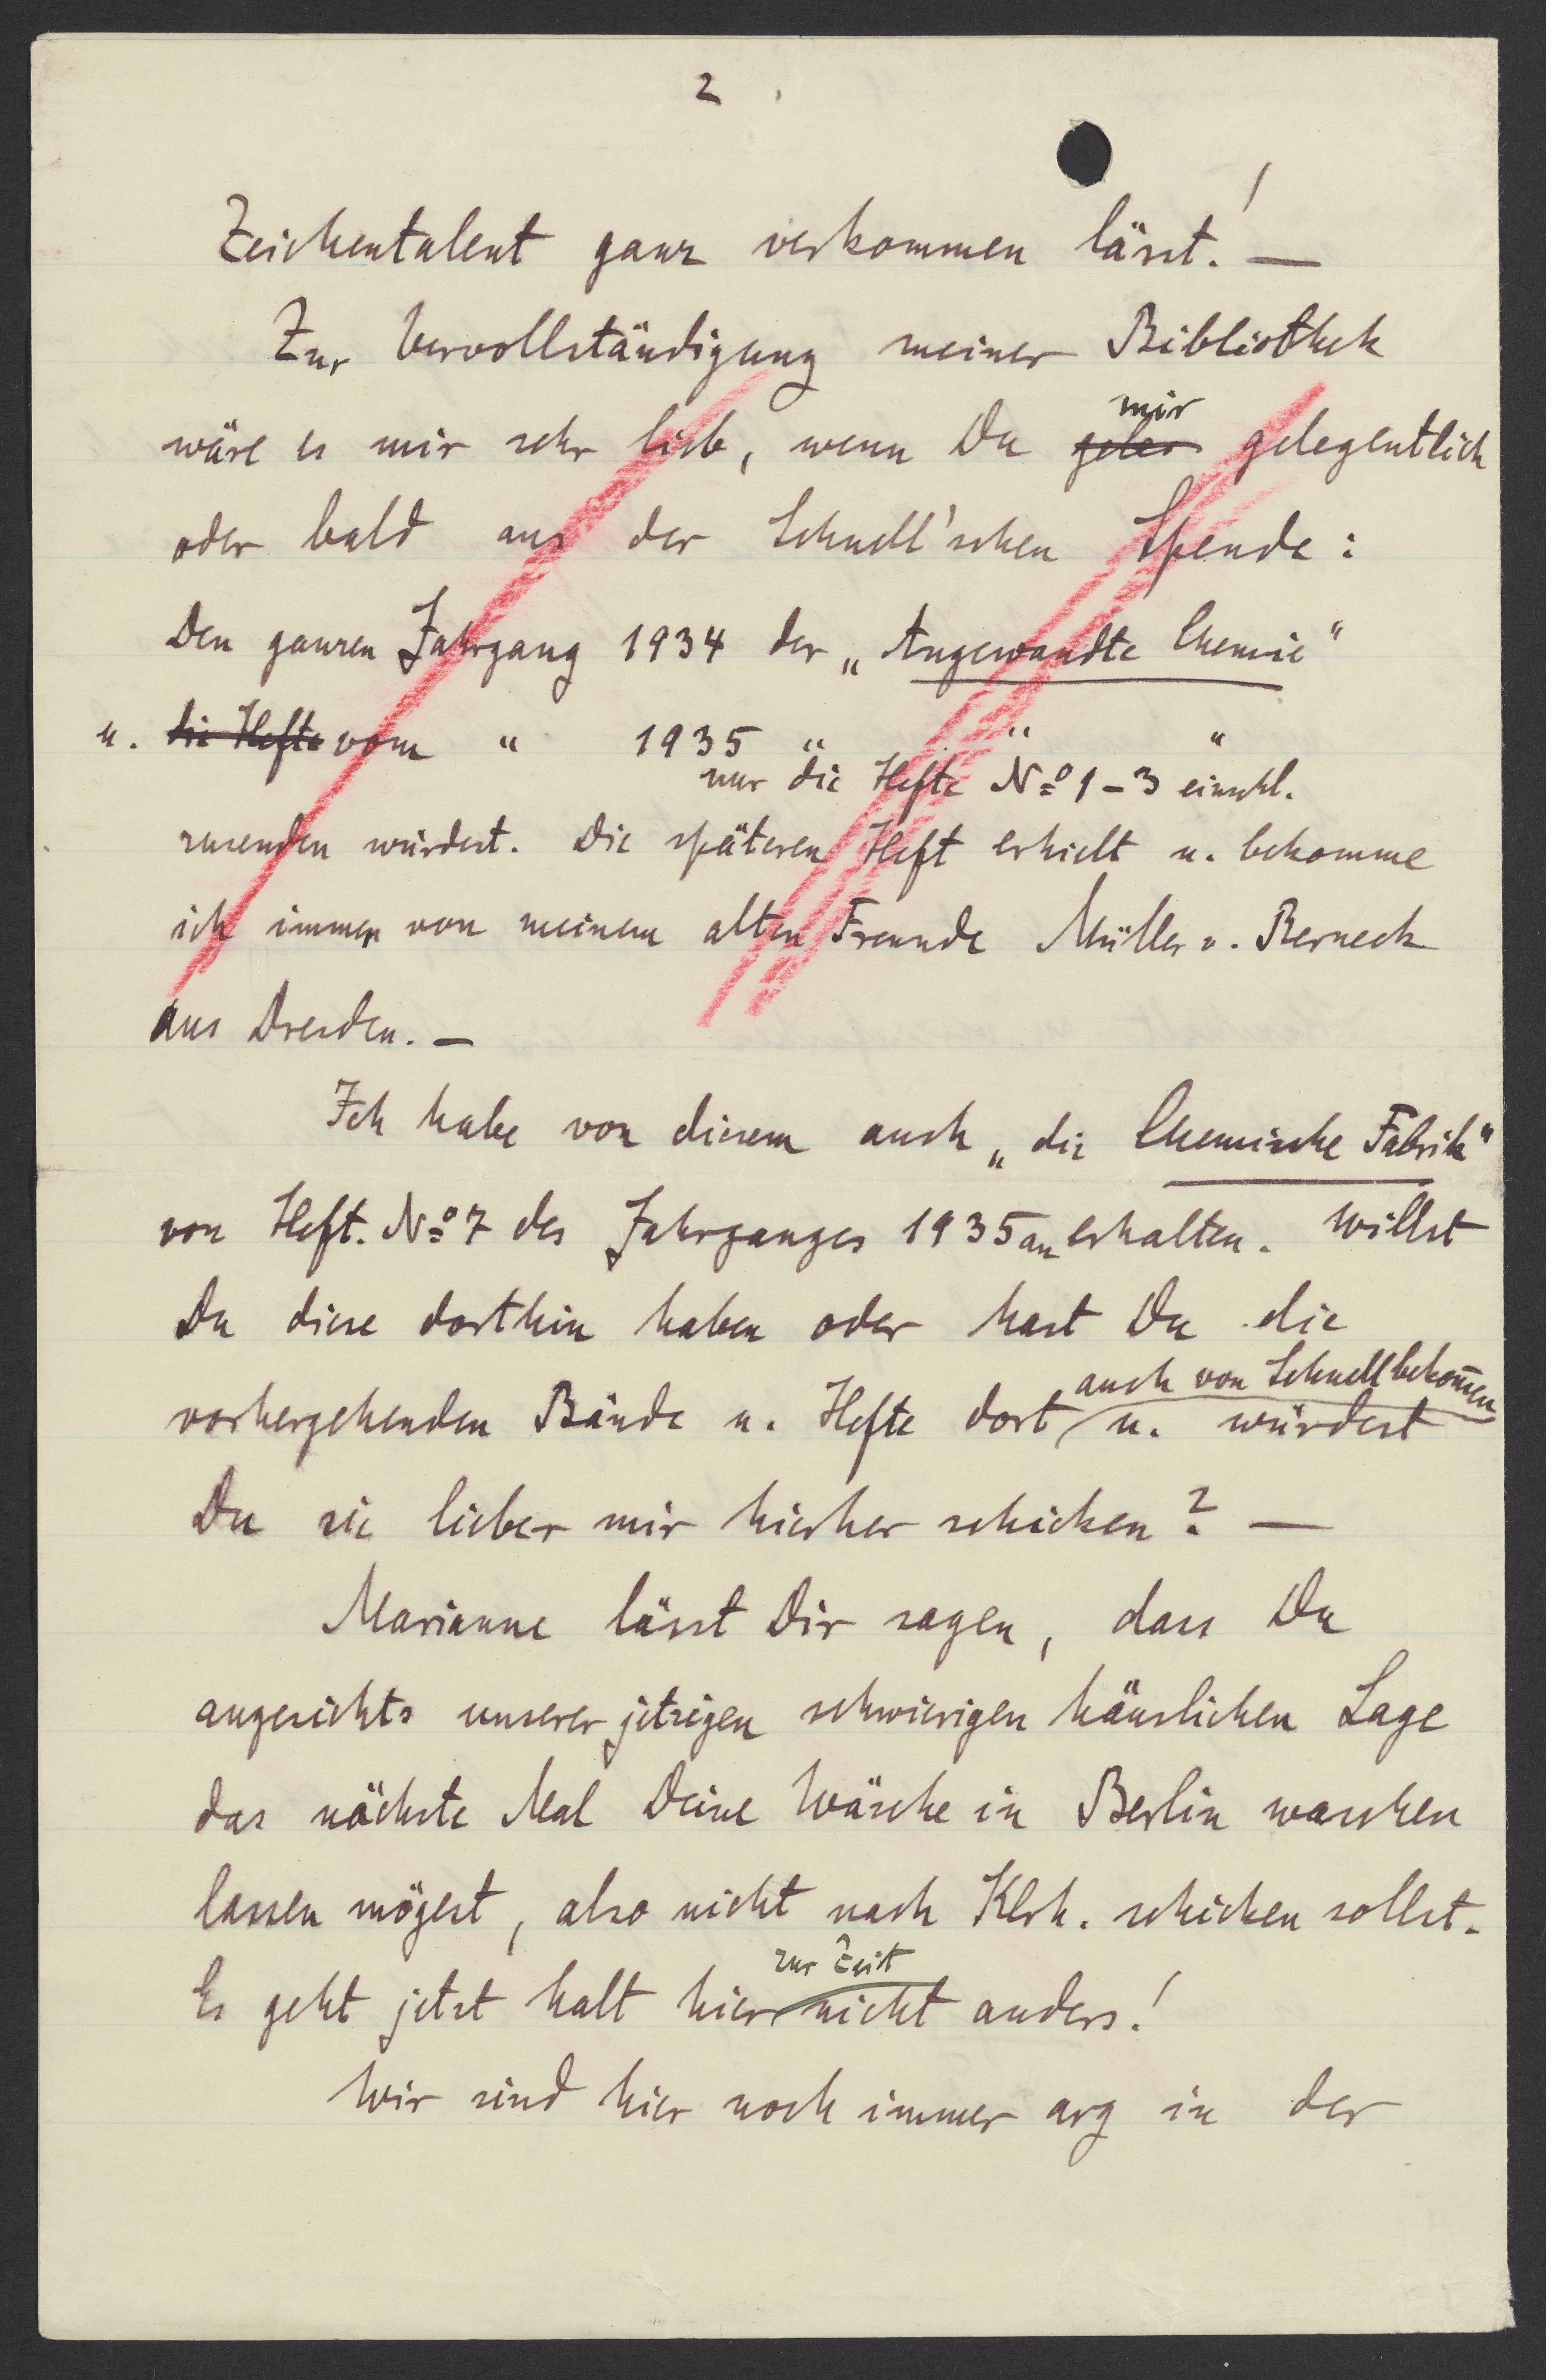 2
Zeichentalent ganz verkommen lässt! —
Zur Vervollständigung meiner Bibliothek
wäre es mir sehr lieb, wenn Du mir gelegentlich
oder bald aus der Schnell'schen Spende:
Den ganzen Jahrgang 1934 der „Angewandte Chemie"
u. die Hefte vom " 1935 " " "
nur die Hefte No 1-3 einschl.
zusenden würdest. Die späteren Heft erhielt u. bekomme
ich immer von meinem alten Freunde Müller v. Berneck
aus Dresden. —
Ich habe von diesem auch „die Chemische Fabrik"
von Heft. No 7 des Jahrganges 1935 an erhalten. Willst
Du diese dorthin haben oder hast Du die
auch von Schnell bekom̄en
vorhergehenden Bände u. Hefte dort u. würdest
Du sie lieber mir hierher schicken? —
Marianne lässt Dir sagen, dass Du
angesichts unserer jetzigen schwierigen häuslichen Lage
das nächste Mal Deine Wäsche in Berlin waschen
lassen mögest, also nicht nach Klsh. schicken sollst.
zur Zeit
Es geht jetzt halt hier nicht anders!
Wir sind hier noch immer arg in der